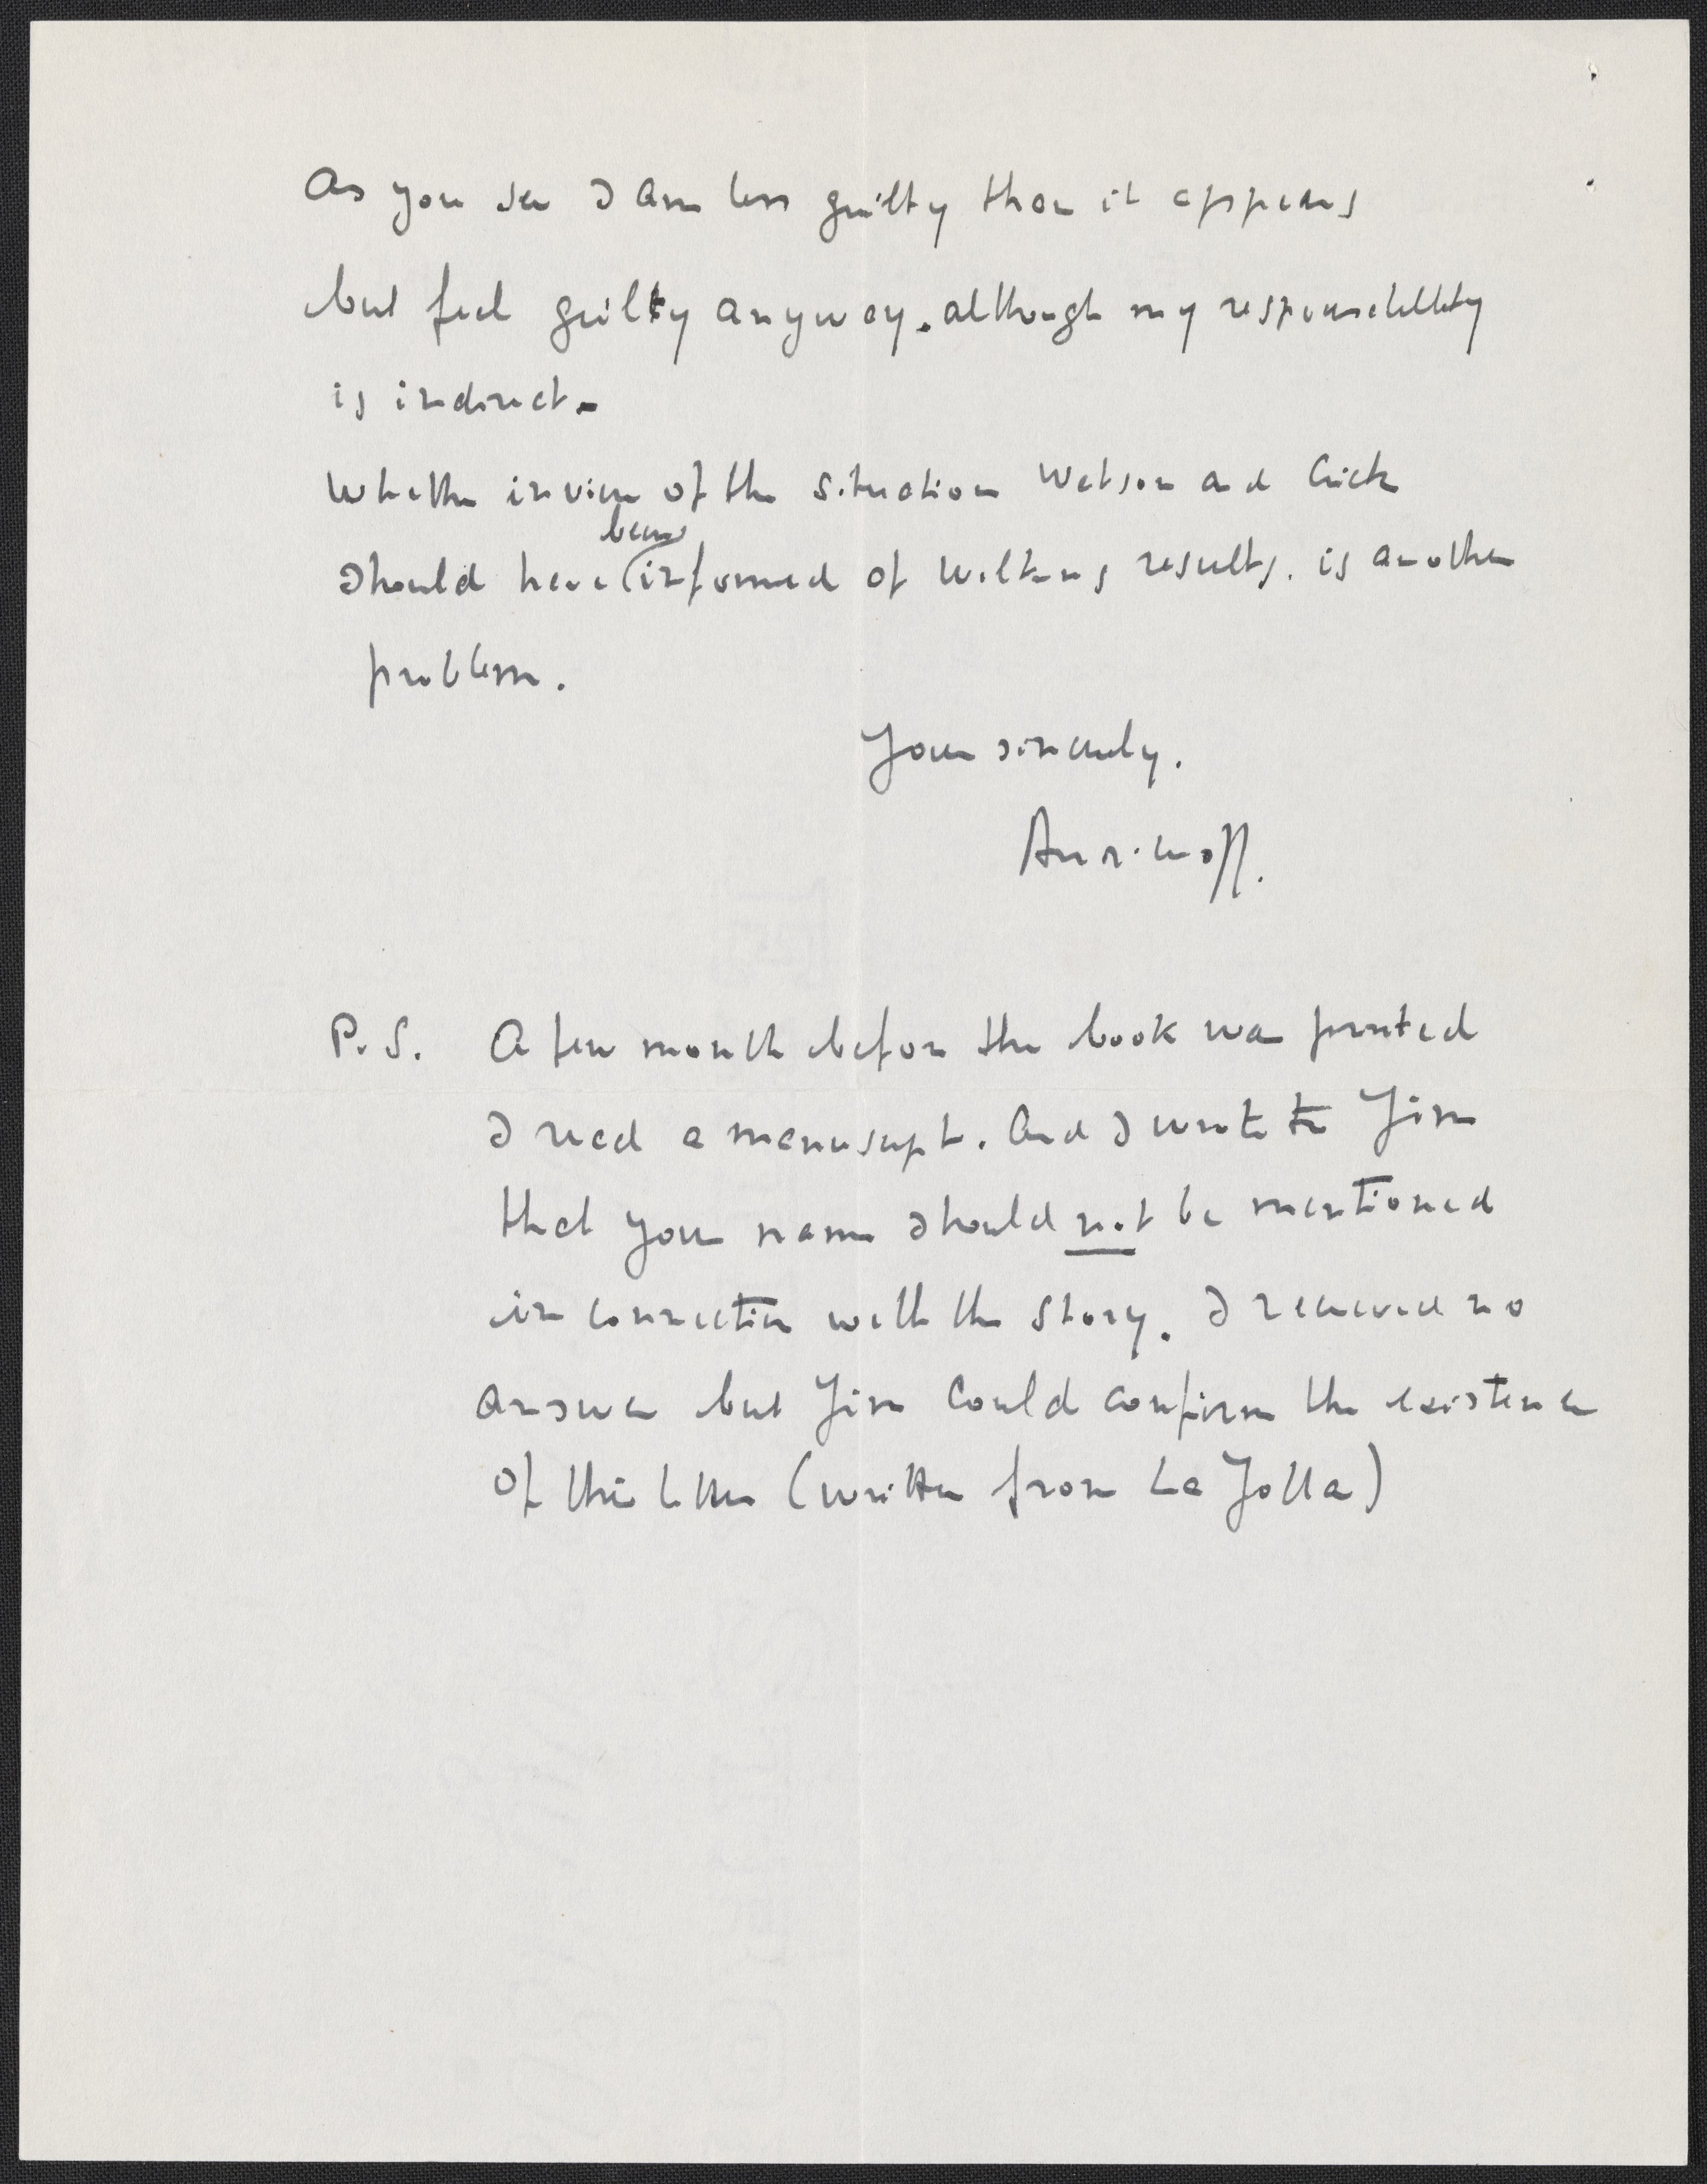 As you see I am less guilty than it appears
but feel guilty anyway. although my responsibillity
is indirect.
Whether in view of the situation Watson and Crick
been
should have (informed of Wilkins results. is another
problem.
Your sincerely.
P.S. A few month before the book was printed
I read a manuscript. And I wrote to Jim
that your name should not be mentioned
in connection with the story. I received no
answer but Jim could confirm the existence
of this letter (written from La Jolla)